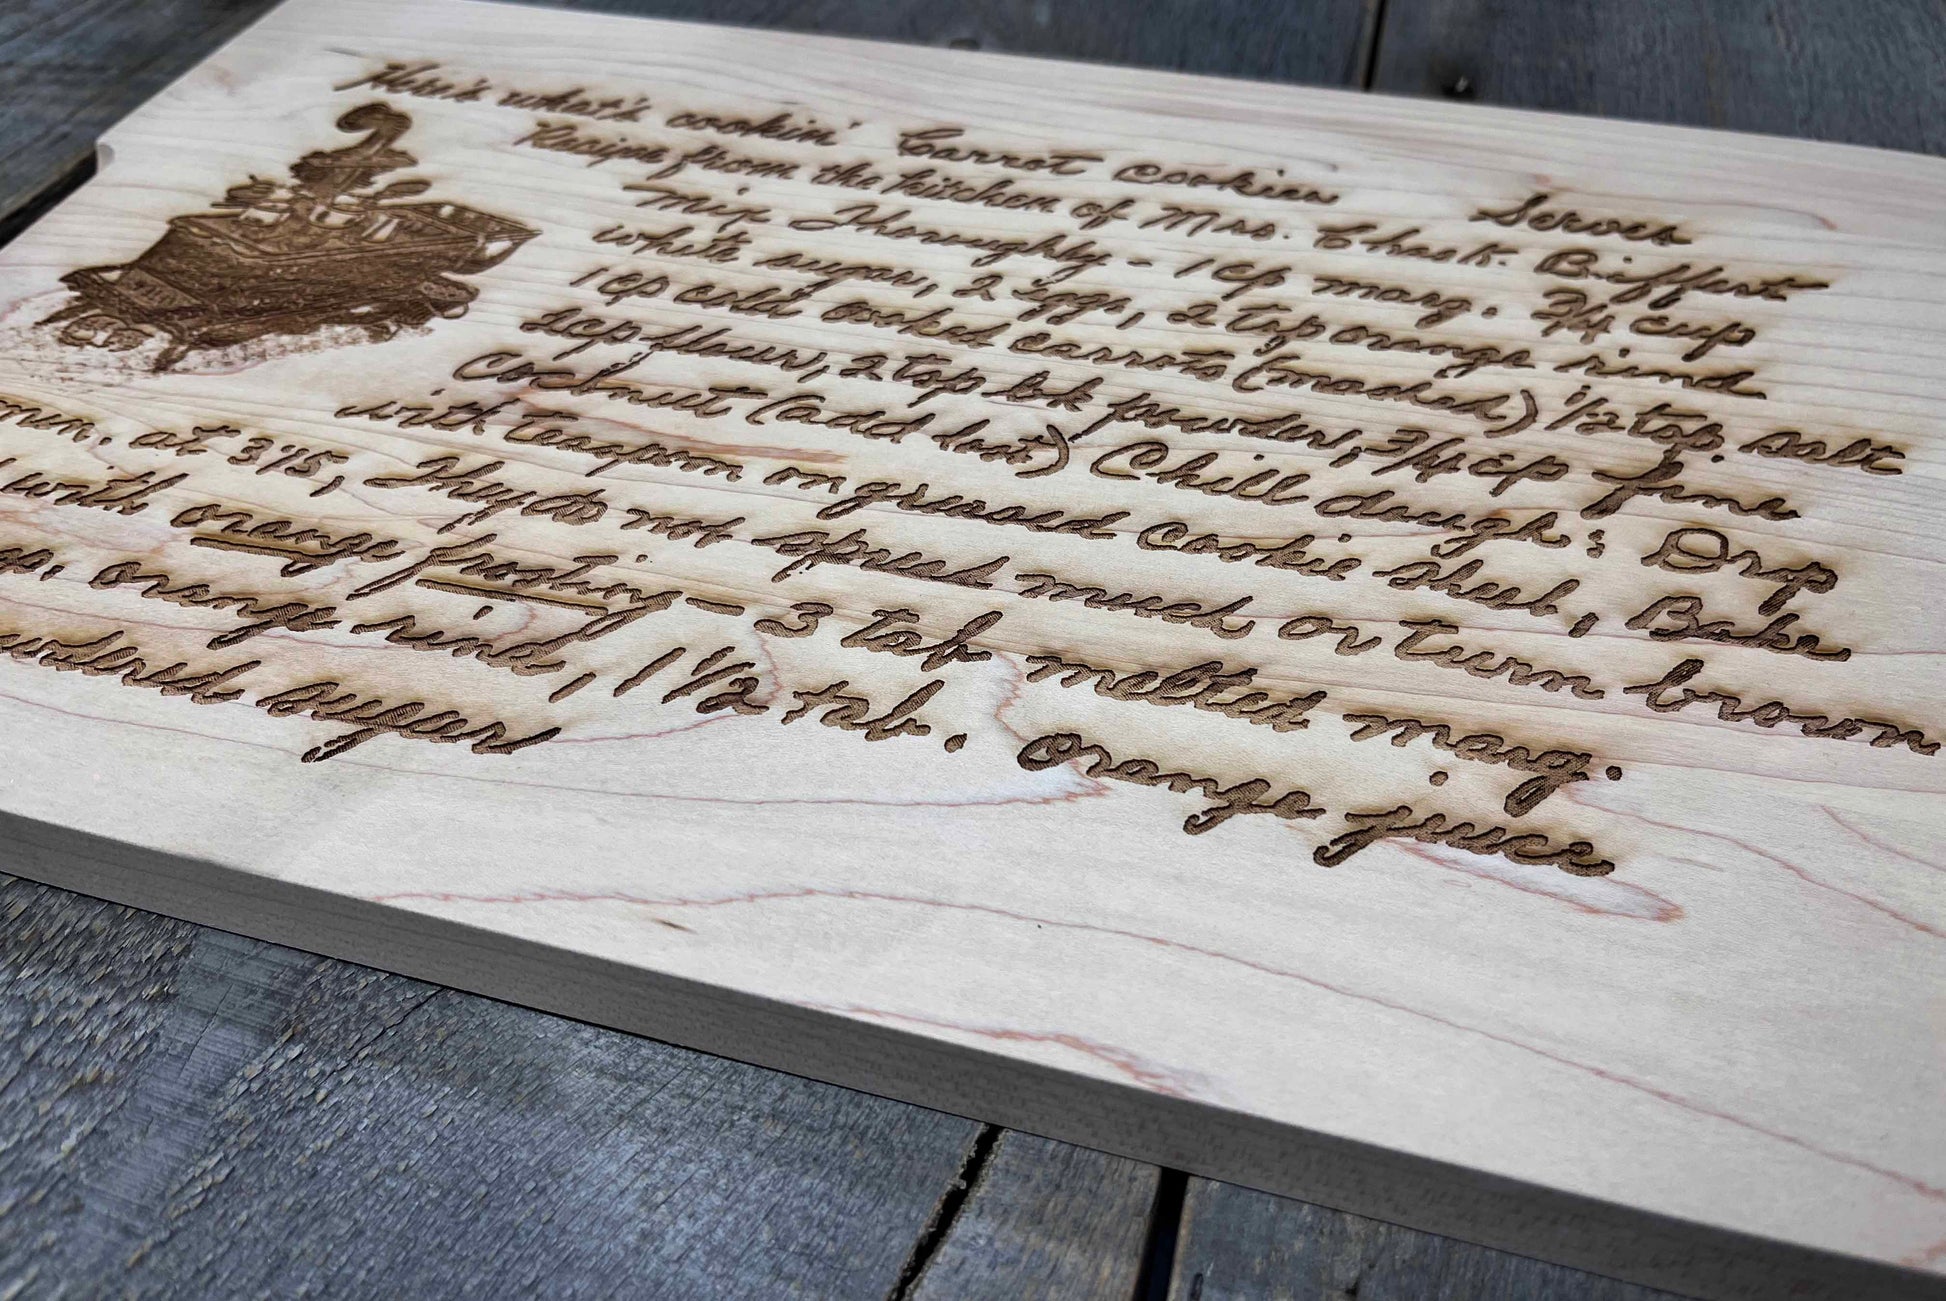 Here's what's cookin' Carrot Cookies Serves
Recipe from the kitchen of Mrs. Chas. K. Biffert
Mix Thoroughly - 1 cp marg. 3/4 cup
white sugar, 2 eggs, 2 tsp orange rind
1 cp cold cooked carrots (mashed) 1/2 tsp. salt
2 cp flour, 2 tsp bk powder, 3/4 cp fine
Coconut (add last) Chill dough: Drop
with teaspoon on greased cookie sheet, Bake
min. at 375, They do not spread much or turn brown
with orange frosting - 3 tab melted marg.
orange rind, 1 1/2 tab. orange juice